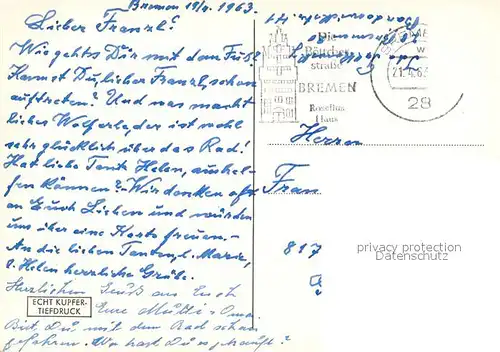 Bremen 19/4. 1963.
Lieber Franzl!
Wie gehts Dir mit dem Fuß?
Kannst Du, lieber Franzl, schon
auftreten? Und was macht
lieber Wolferl, der ist wohl
sehr glücklich über das Rad!
Hat liebe Tante Helen, aushel-
fen können? - Wir denken oft
an Euch Lieben und würden
uns über eine Karte freuen. -
An die lieben Tanten, l. Marie,
l. Helen herzliche Grüße.
Herzlichen Gruß an Euch
Eure Mutti - Oma.
Bist Du mit dem Rad schon
gefahren. Wo hast Du es gekauft?
ECHT KUPFER-
TIEFDRUCK
Die
Böttcher
straße
BREMEN
Roselius
Haus
21.4.63
28
Herrn
Fran
817
privacy protection
Datenschutz